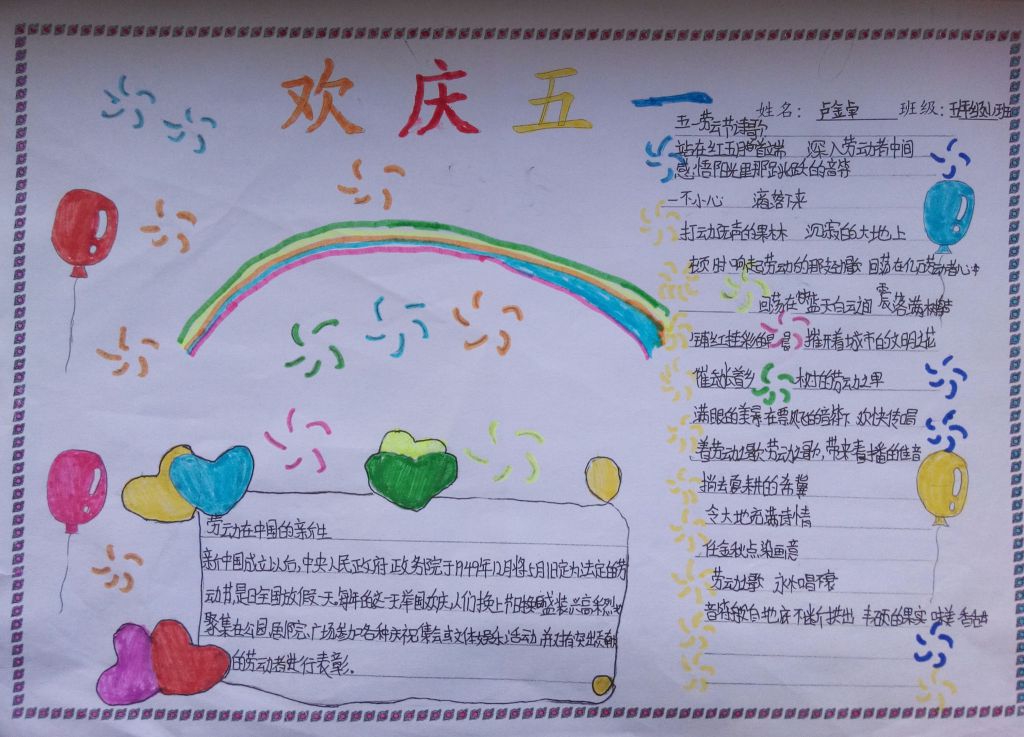 欢庆五一
姓名：卢金卓 班级：五年级
五一劳动节诗歌
站在红五月的首端 深入劳动者中间
感悟阳光里那跳跃的音符
一不小心 滴落下来
打动无声的果林 沉寂的大地上
顿时响起劳动的那赞歌 回荡在亿万劳动者心中
回荡在蓝天白云间 震落满树
铺红挂彩的 推开着城市的文明之城
催 着乡 村的劳动之果
满眼的美景在 的音符下 欢快传唱
着劳动之歌劳动之歌，带来春播的佳音
捎去夏耕的希冀
令大地充满诗情
任金秋点染画意
劳动之歌 永不唱衰
音符般自地底不断拱出 丰硕的果实 味美香甜
劳动在中国的新生
新中国成立以后，中央人民政府政务院于1949年12月将5月1日定为法定的劳
动节，是日全国放假一天。每年的这一天举国欢庆，人们换上节日 盛装兴高采烈地
聚集在公园、剧院、广场参加各种庆祝集会或文体娱乐活动，并对有突出贡献
的劳动者进行表彰。